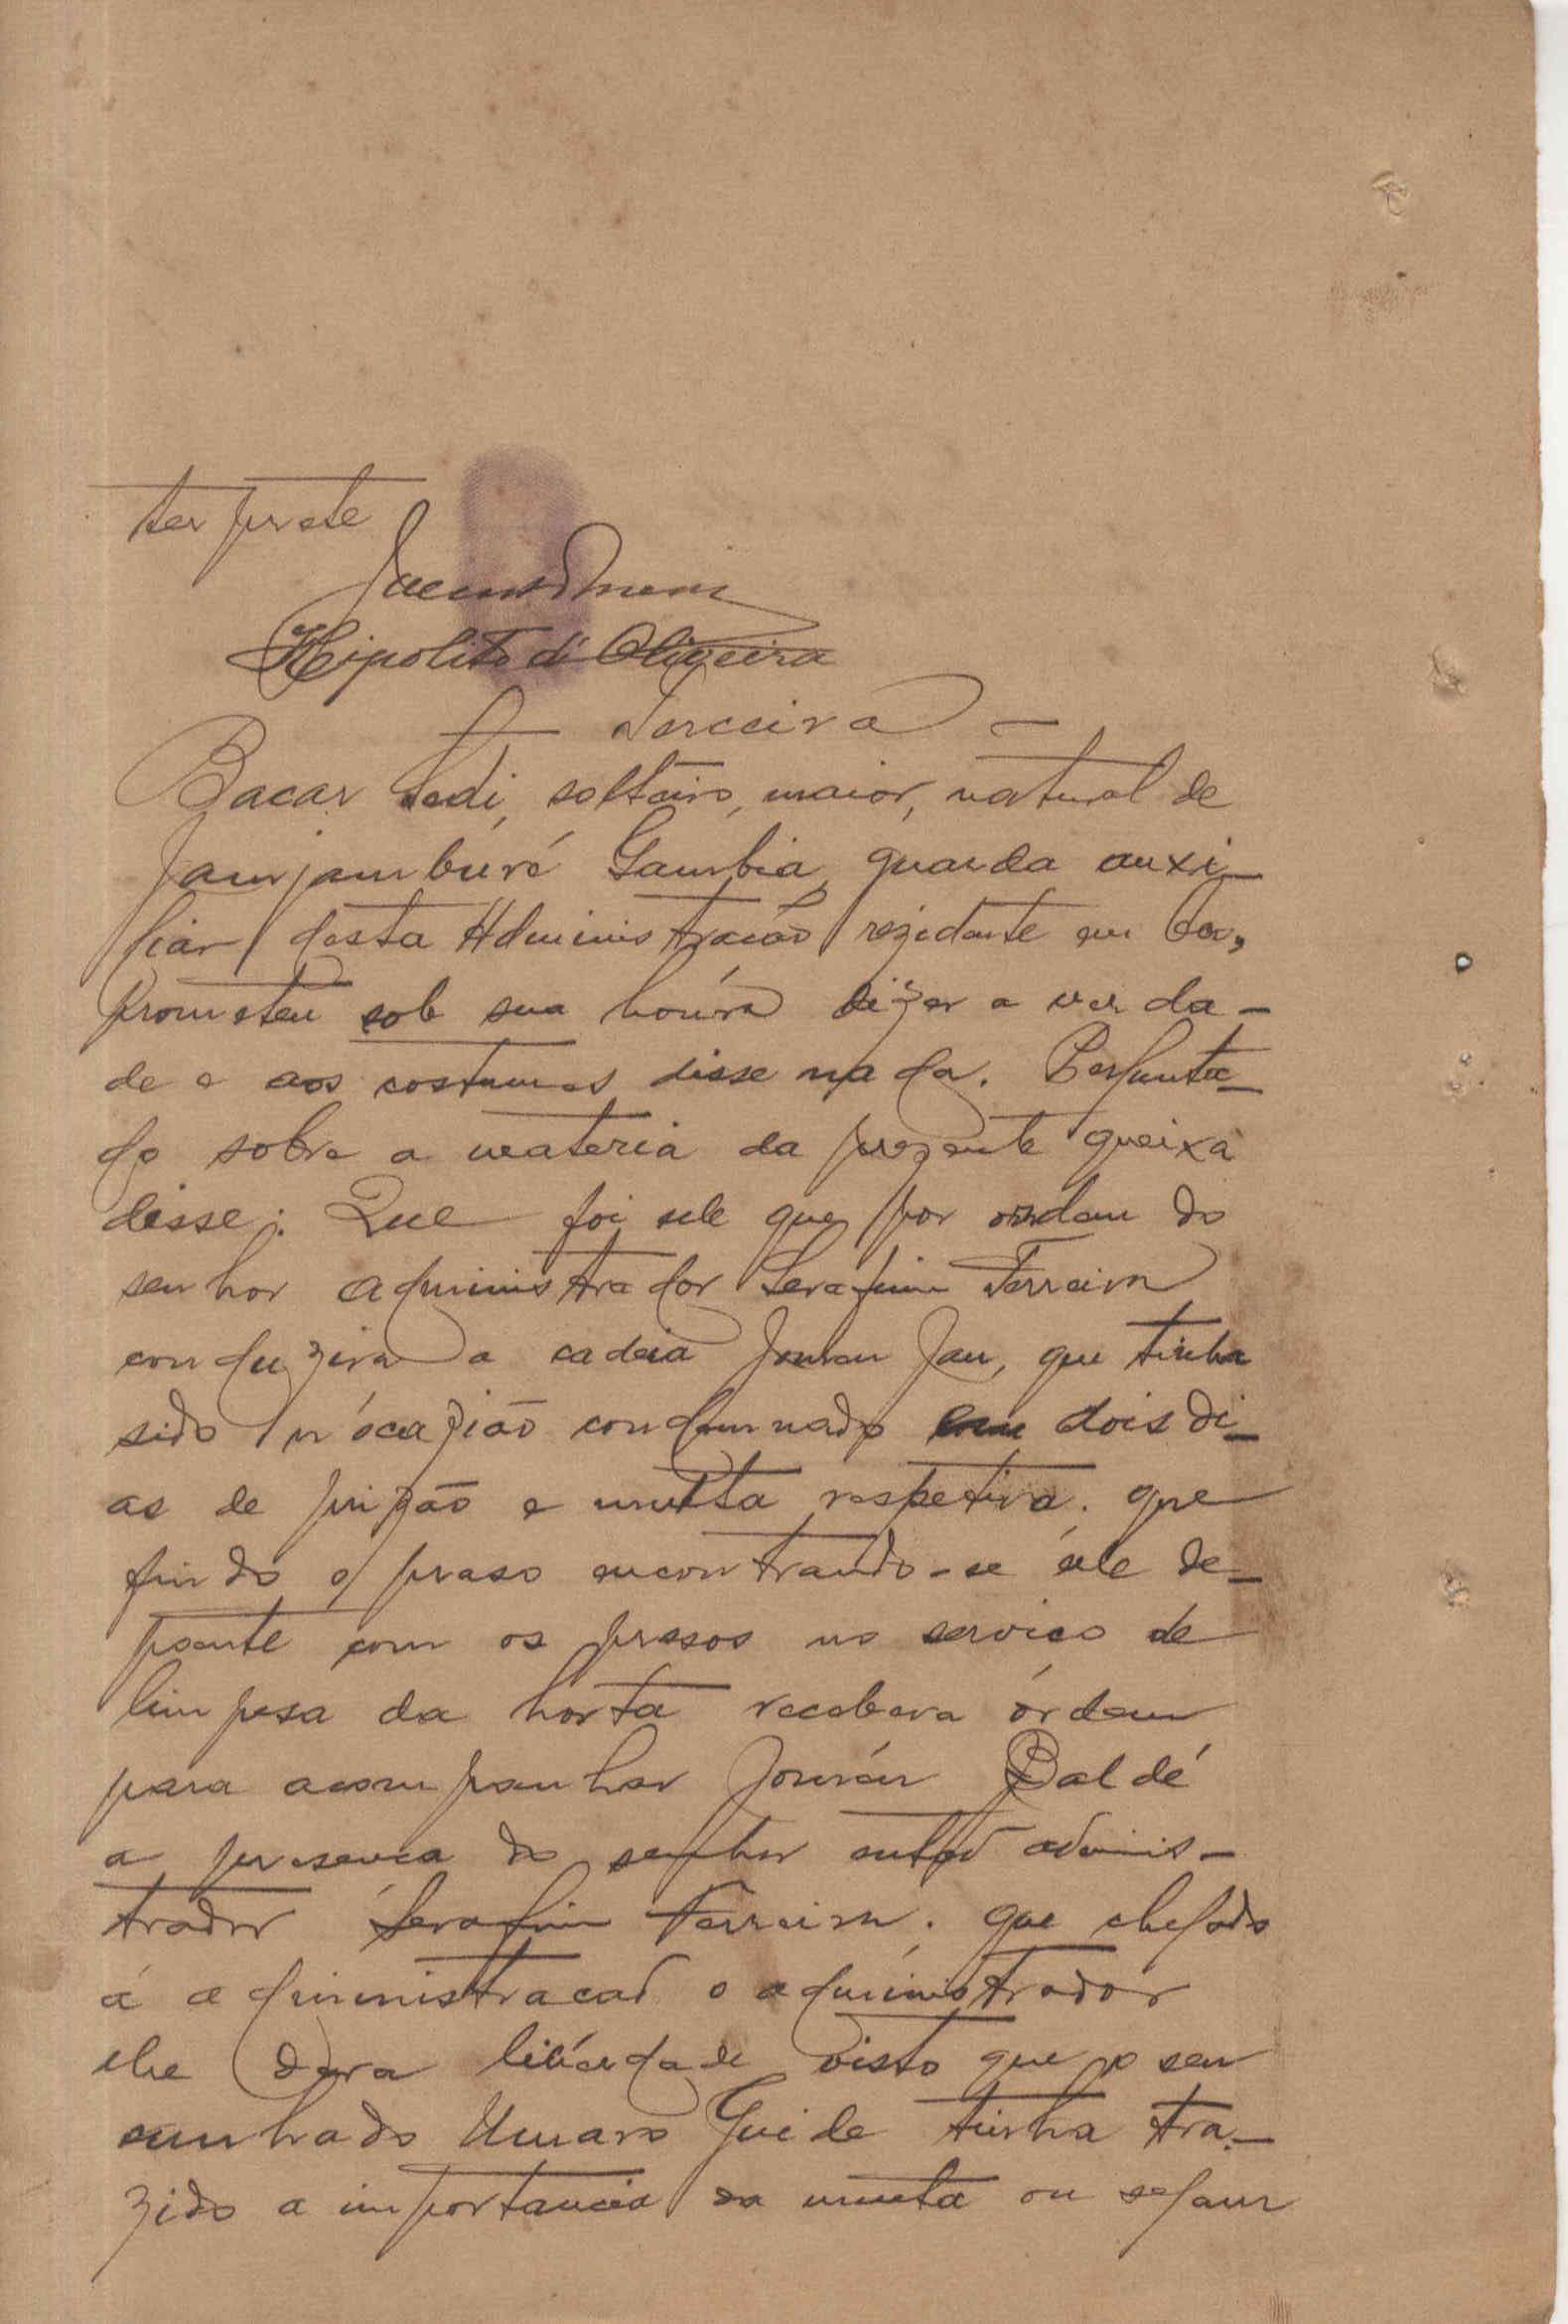 terprete
Hipolito d'Oliveira
— Terceira —
Bacar Sedi, solteiro, maior, natural de
Jamjamburé Gambia, guarda auxi-
liar desta Administracão rezidente em Ba,
prometeu sob sua honra dizer a verda-
de e aos costumes disse nada. Pergunta-
do sobre a materia da prezente queixa
disse: Que foi ele que por ordem do
senhor administrador Serafim Ferreira
conduzira a cadeia Jomem Jau, que tinha
sido n'ócazião condemnado em dois di-
as de prizão e multa respetiva. que
findo o praso encontrando-se ele de-
poente com os presos no servico de
limpesa da horta recebera órdem
para acompanhar Baldé
a presenca do senhor então adminis-
trador Serafim Ferreira. que chegado
á administracão o administrador
lhe dera libérdade visto que o seu
cunhado Umaro Guide tinha tra-
zido a importancia da multa ou sejam